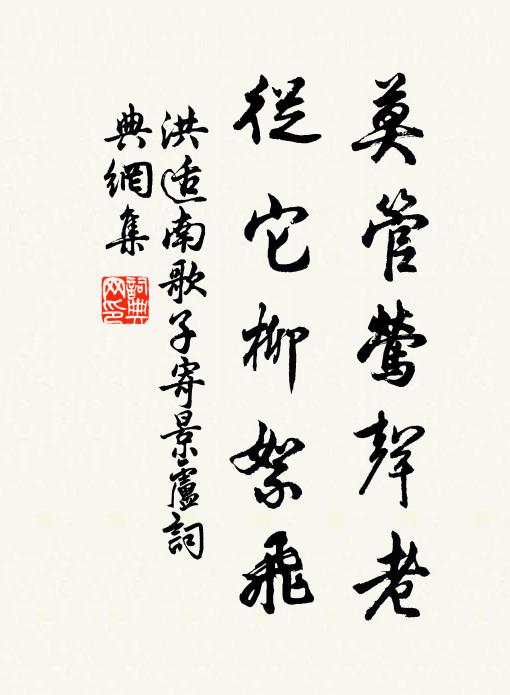 莫管鶯聲老
從它柳絮飛
洪适南歌子寄景廬詞
典網集
詞典網印